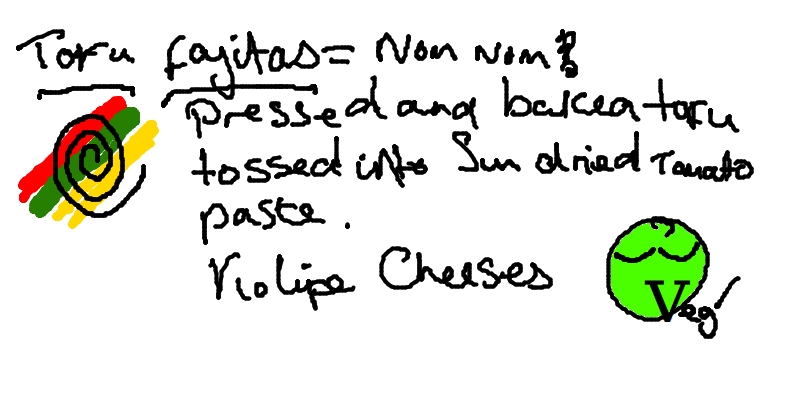 Tofu fajitas = Nom nom!
pressed and baked tofu
tossed into Sun dried Tomato
paste.
Violife Cheeses
Veg